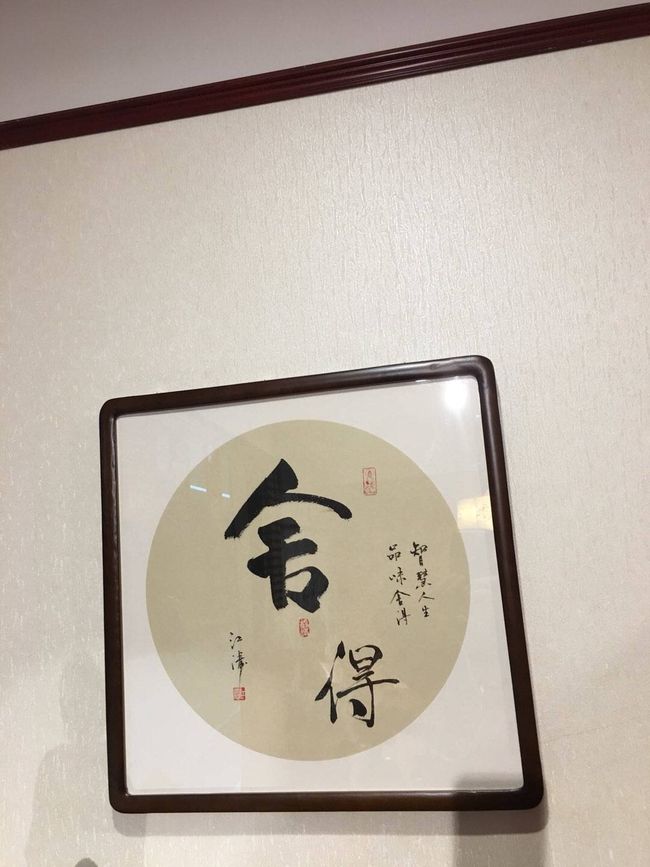 舍得
智慧人生
品味舍得
江涛